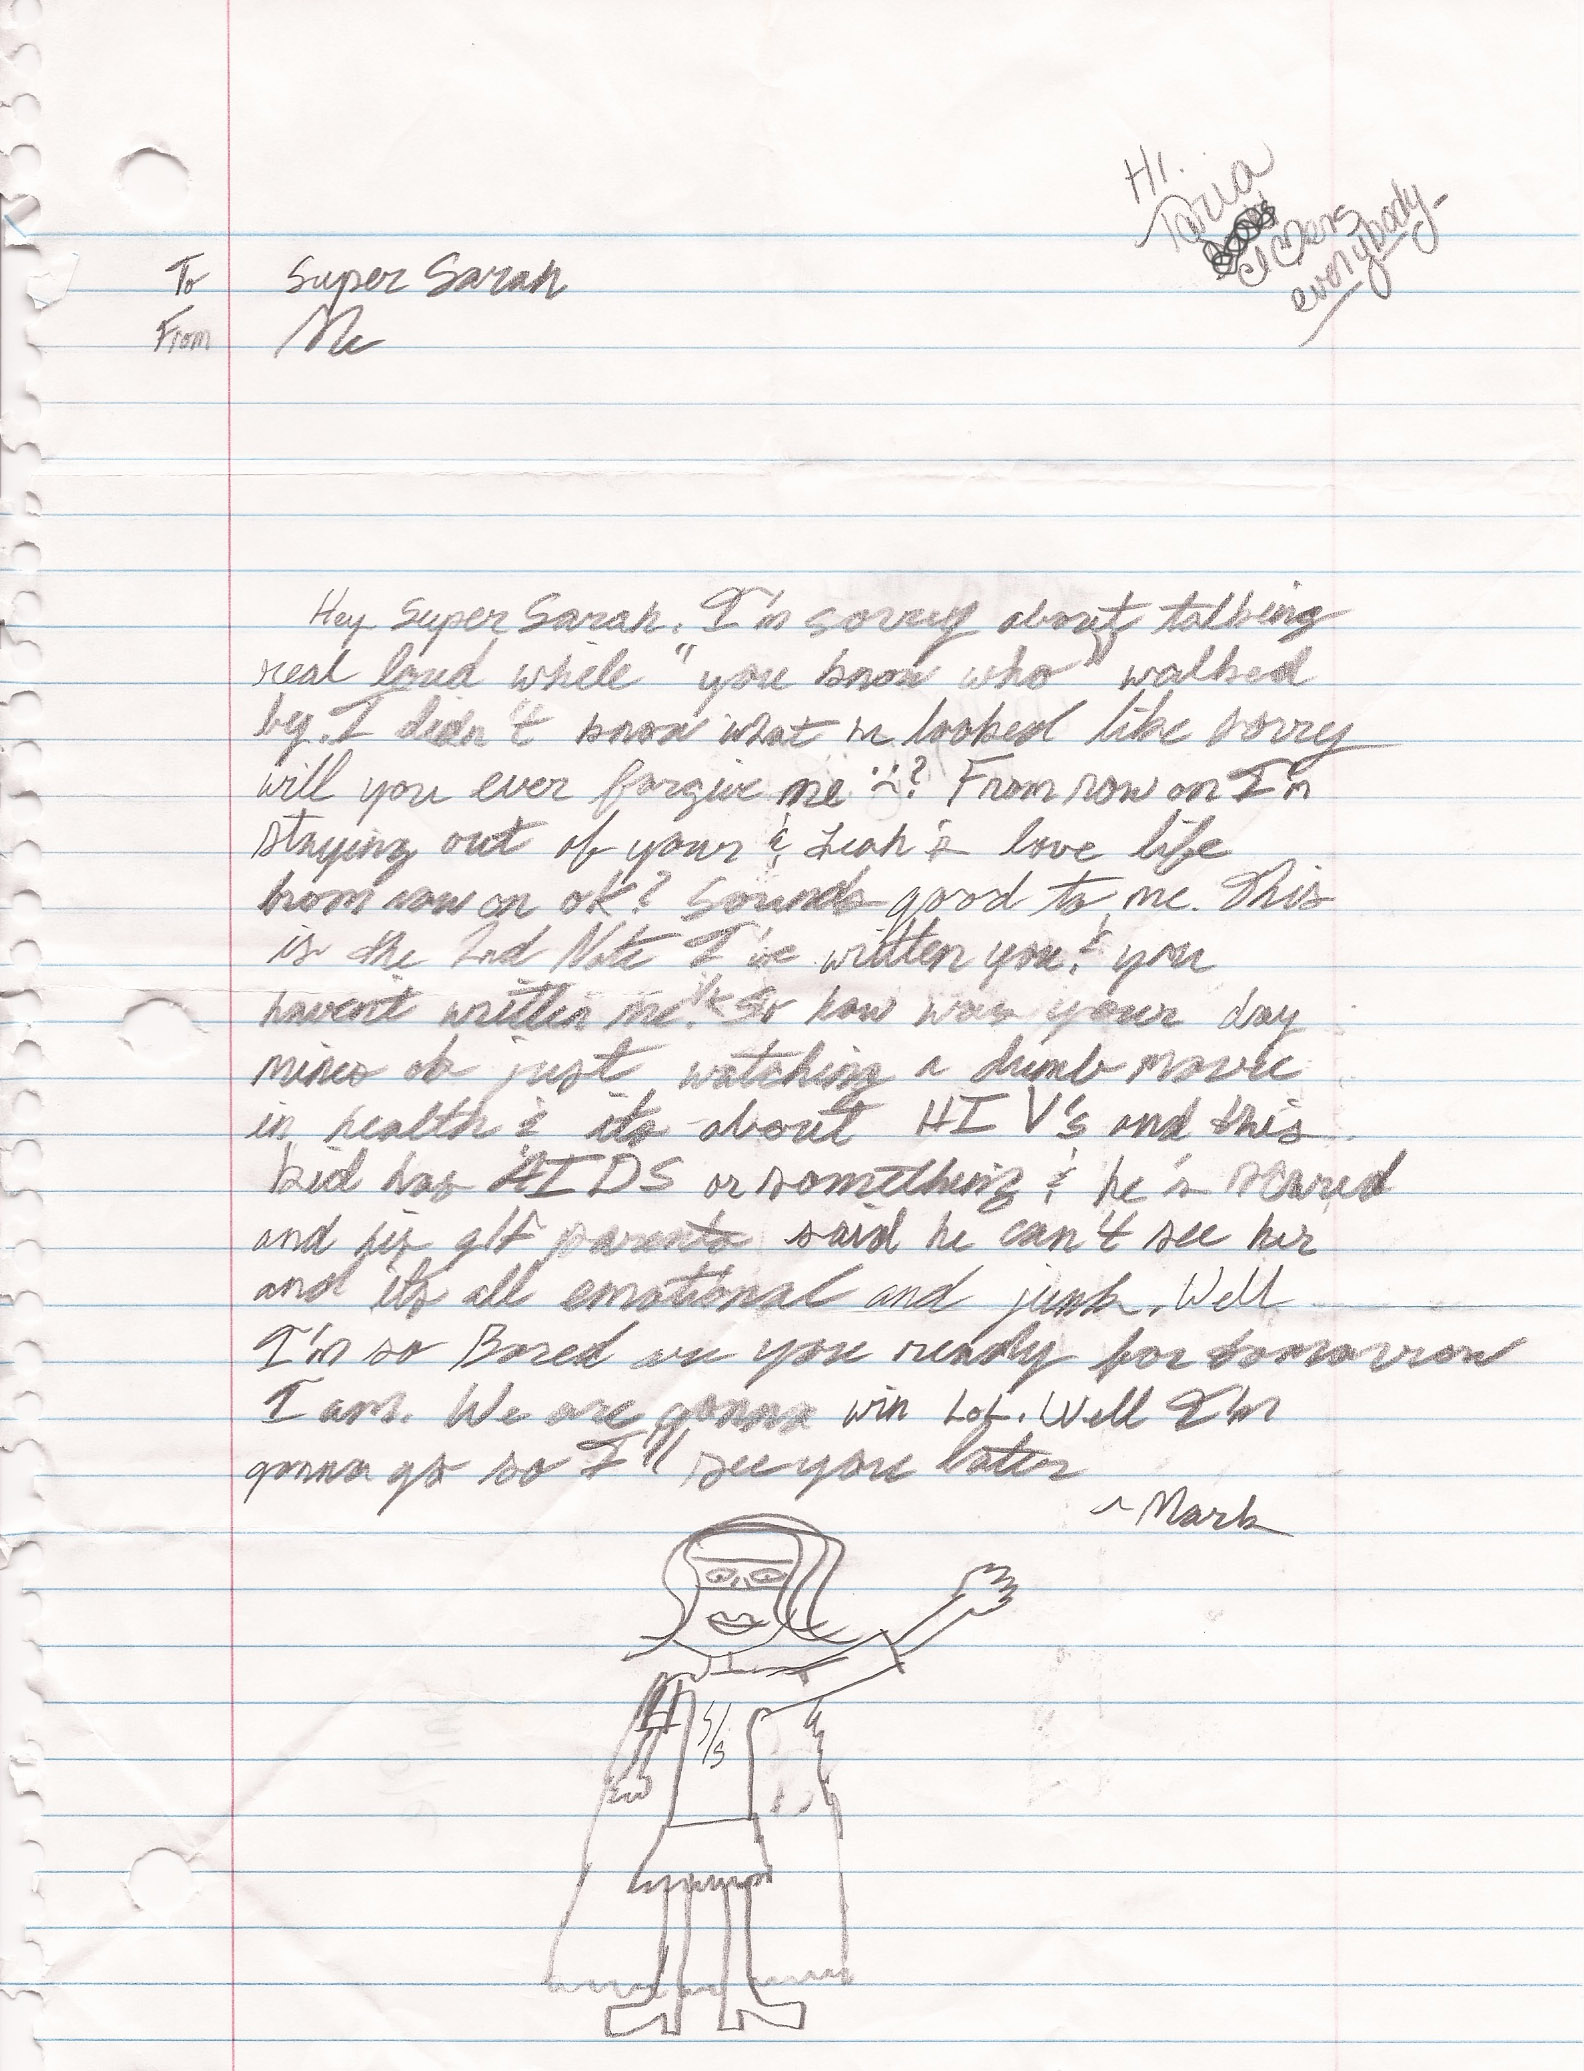 Hi.
Taria
♡ers
everybody-
To Super Sarah
From Me
Hey Super Sarah. I'm sorry about talking
real loud while "you know who" walked
by. I didn't know what he looked like sorry
will you ever forgive me ? From now on I'm
staying out of your & Leah's love life
from now on ok? Sounds good to me. This
is the 2nd Note I've written you & you
havent written me. So how was your day
mines ok just watching a dumb movie
in health & its about HIV's and this
kid has AIDS or something & he's scared
and his g/f parents said he can't see her
and its all emotional and junk. Well
I'm so Bored are you ready for tomorrow
I am. We are gonna win LoL. Well I'm
gonna go so I'll see you later
~Mark
S/S